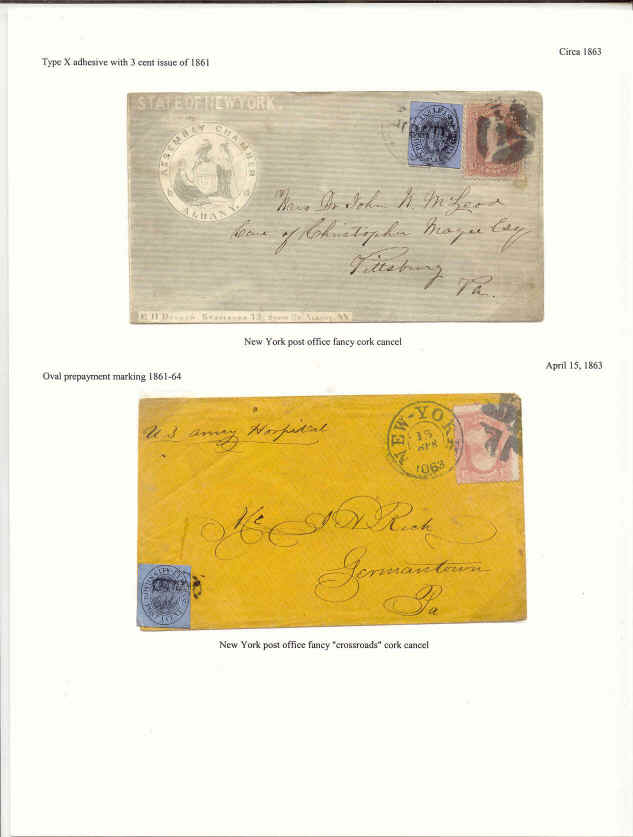 Circa 1863
Type X adhesive with 3 cent issue of 1861
STATE OF NEW YORK.
ASSEMBLY CHAMBER
ALBANY.
Mrs Dr John N. McLeod
Care of Christopher Magee Esq
Pittsburg
Pa.
New York post office fancy cork cancel
April 15, 1863
Oval prepayment marking 1861-64
U S army Hospital
NEW-YORK
15
APR
1863
J H Rich
Germantown
Pa
New York post office fancy "crossroads" cork cancel